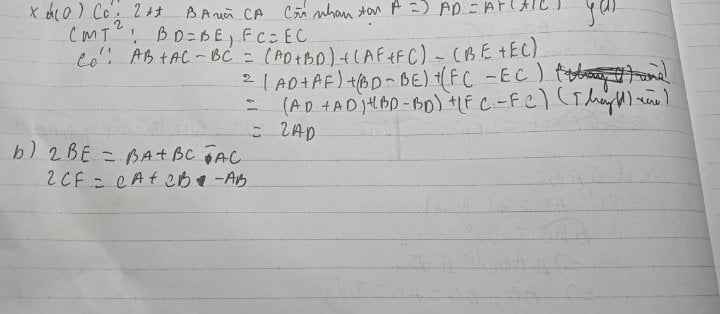 x đ(O) Có: 2 tt BA và CA Cắt nhau tại A => AD = AF (t/c)
CMT²: BD = BE, FC = EC
Có: AB + AC - BC = (AD + BD) + (AF + FC) - (BE + EC)
= (AD + AF) + (BD - BE) + (FC - EC)
= (AD + AD) + (BD - BD) + (FC - FC) (Thay (1) vào)
= 2AD
b) 2BE = BA + BC - AC
2CF = CA + CB - AB